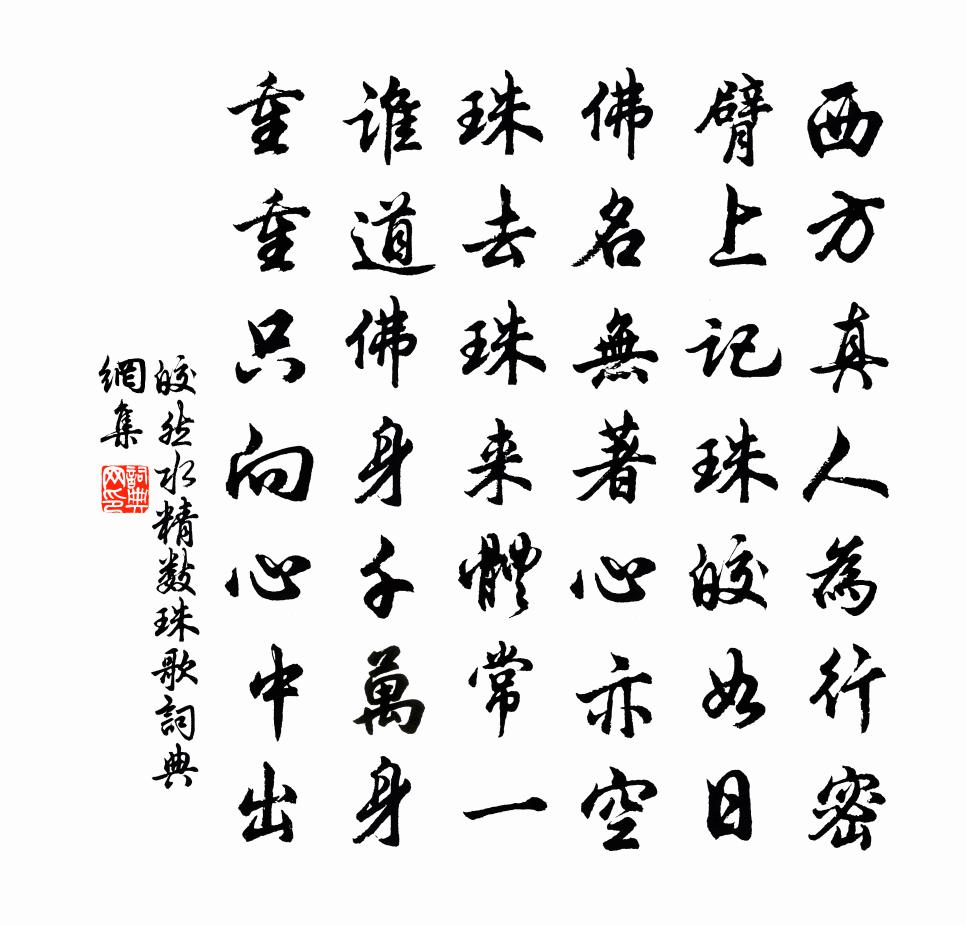 西方真人為行密
臂上記珠皎如日
佛名無著心亦空
珠去珠来體常一
誰道佛身千萬身
重重只向心中出
皎然水精数珠歌詞典
網集
詞典网印